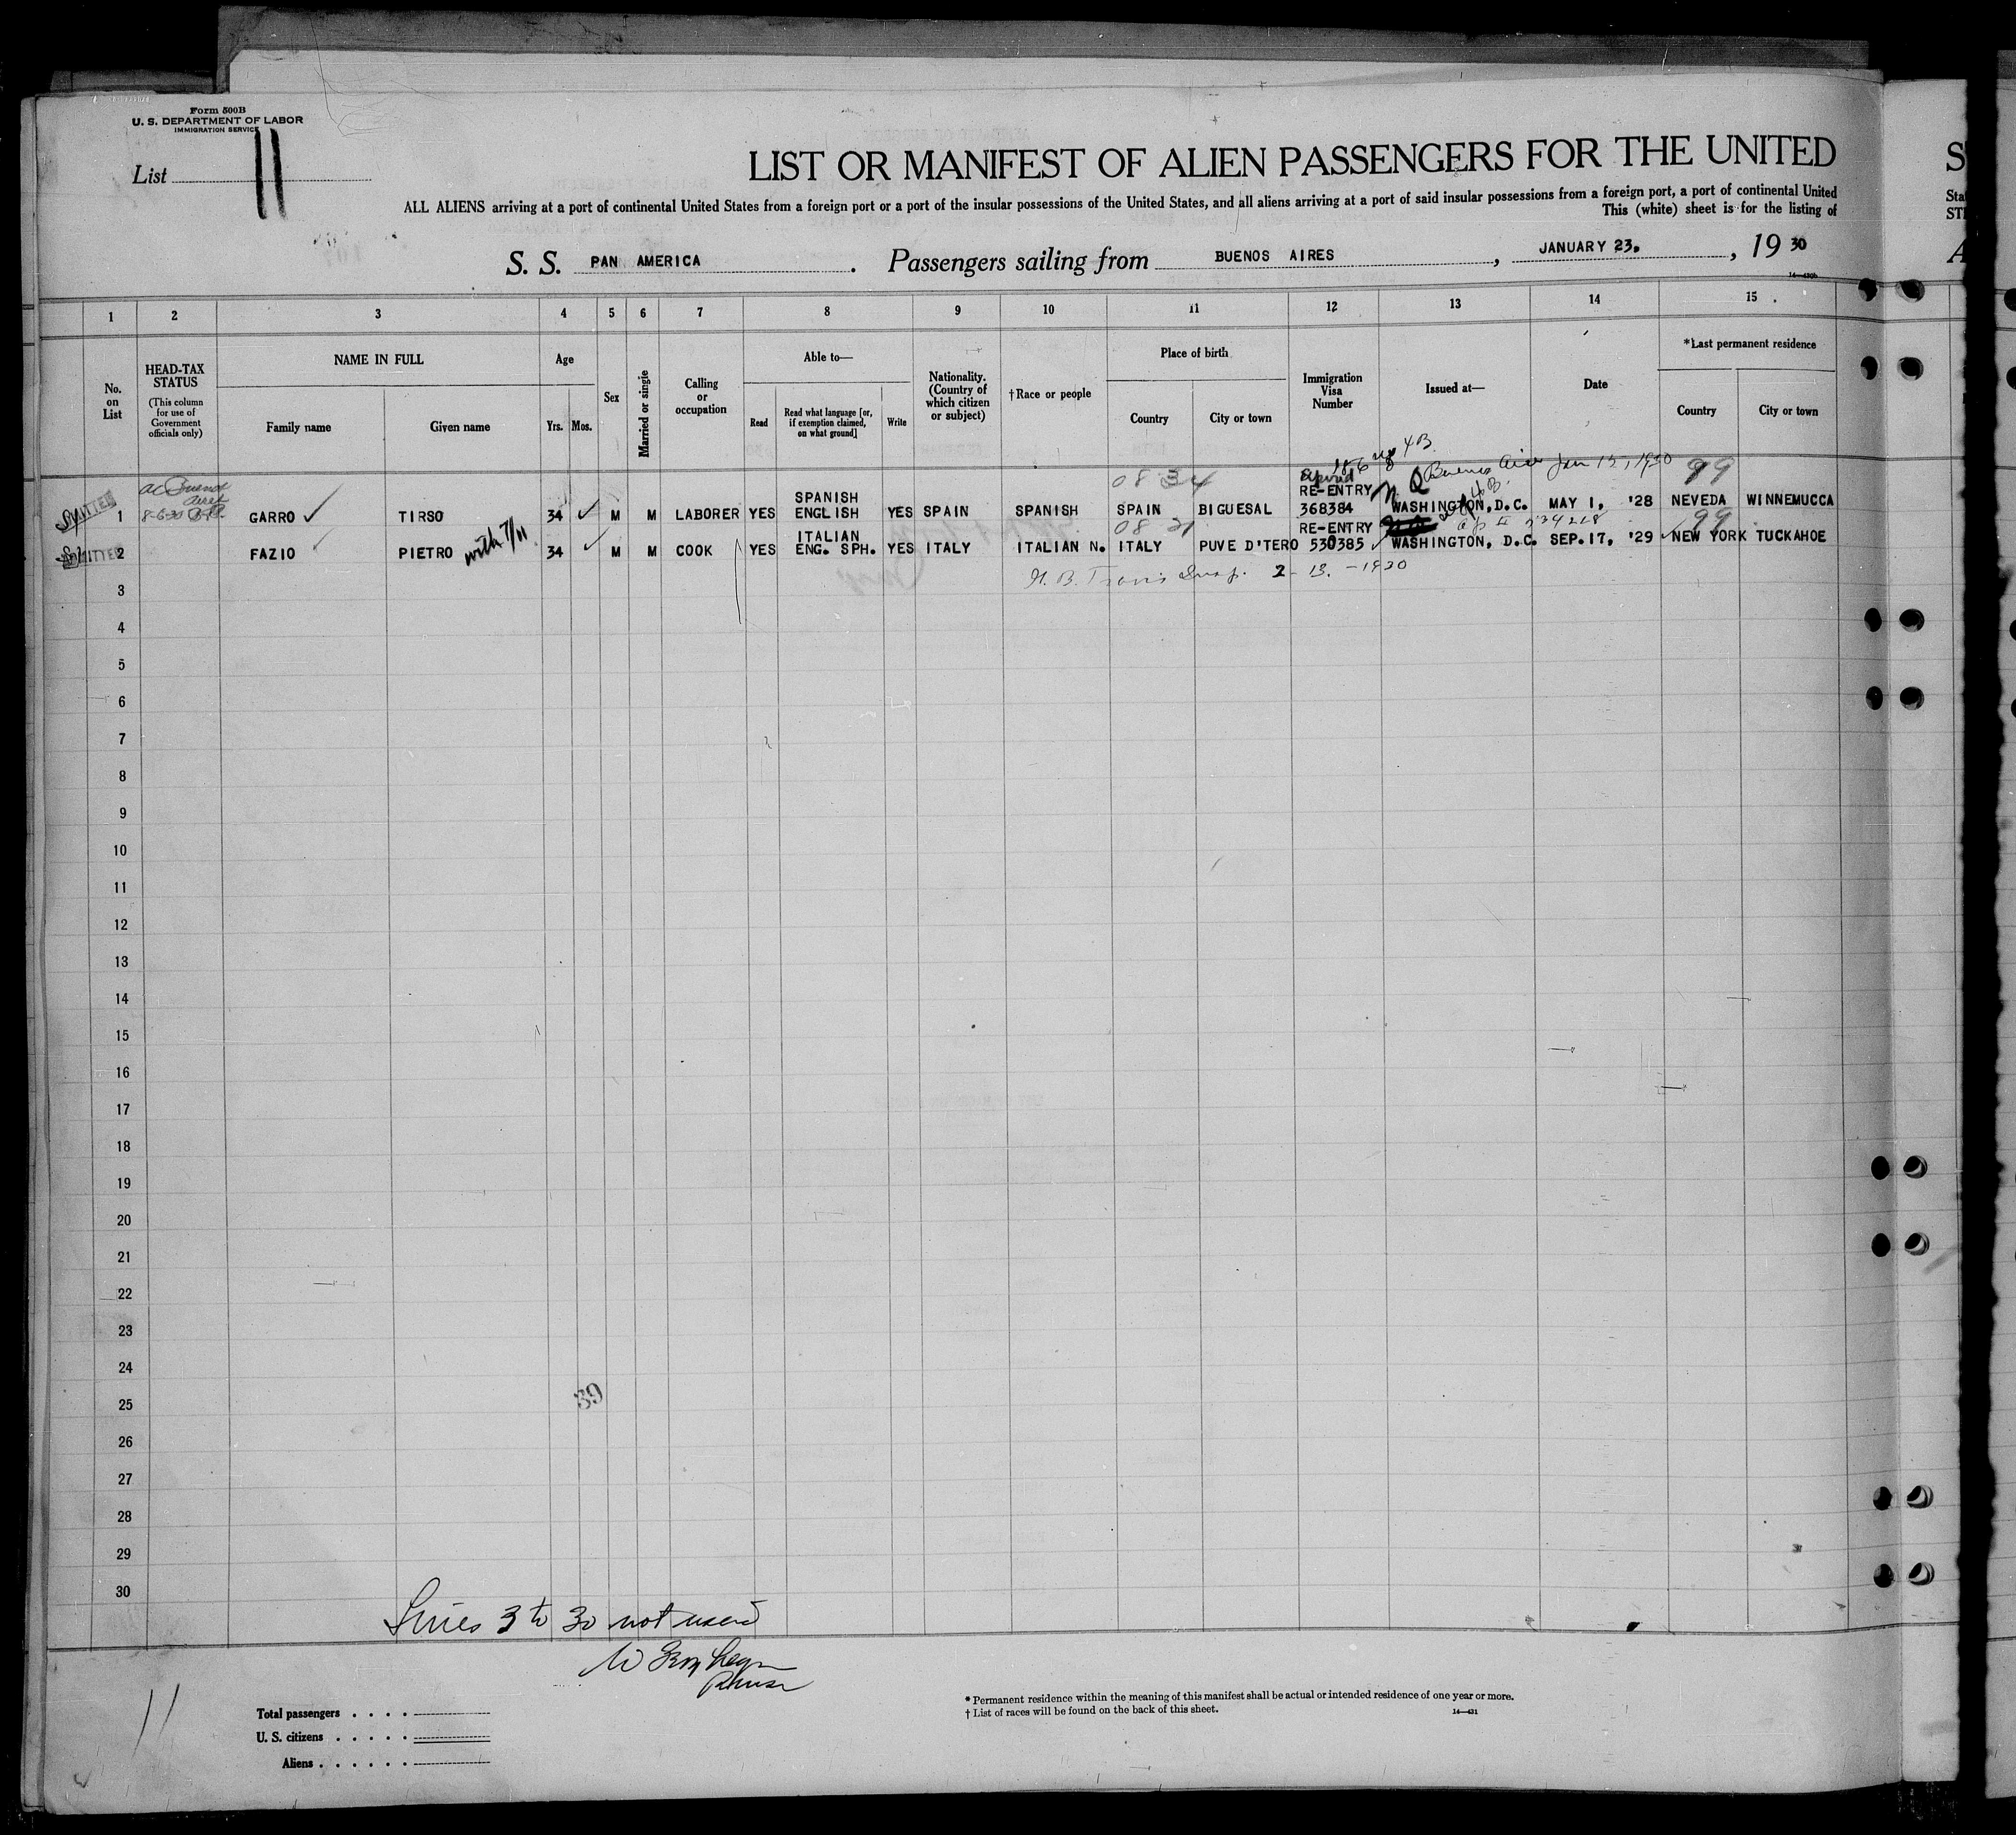 Form 500B
U. S. DEPARTMENT OF LABOR
IMMIGRATION SERVICE
List 11
LIST OR MANIFEST OF ALIEN PASSENGERS FOR THE UNITED
ALL ALIENS arriving at a port of continental United States from a foreign port or a port of the insular possessions of the United States, and all aliens arriving at a port of said insular possessions from a foreign port, a port of continental United
This (white) sheet is for the listing of
S. S. PAN AMERICA . Passengers sailing from BUENOS AIRES , JANUARY 23. , 19 30
1 2 3 4 5 6 7 8 9 10 11 12 13 14 15
No. on List
HEAD-TAX STATUS
(This column for use of Government officials only)
NAME IN FULL
Family name
Given name
Age
Yrs. Mos.
Sex
Married or single
Calling or occupation
Able to—
Read
Read what language [or, if exemption claimed, on what ground]
Write
Nationality. (Country of which citizen or subject)
†Race or people
Place of birth
Country
City or town
Immigration Visa Number
Issued at—
Date
*Last permanent residence
Country
City or town
4B
Buenos Aires Jan 15, 1930
08 34 99
1 GARRO TIRSO 34 M M LABORER YES SPANISH ENGLISH YES SPAIN SPANISH SPAIN BIGUESAL RE-ENTRY 368384 WASHINGTON, D.C. MAY 1, '28 NEVEDA WINNEMUCCA
08 21 99
2 FAZIO PIETRO with 7/11 34 M M COOK YES ITALIAN ENG. SPH. YES ITALY ITALIAN N. ITALY PUVE D'TERO RE-ENTRY 530385 WASHINGTON, D.C. SEP. 17, '29 NEW YORK TUCKAHOE
3 H. B. Travis Insp. 2-13.-1930
4
5
6
7
8
9
10
11
12
13
14
15
16
17
18
19
20
21
22
23
24
25
26
27
28
29
30
39
Lines 3 to 30 not used
11
Total passengers . . . .
U. S. citizens . . . . .
Aliens . . . . . .
* Permanent residence within the meaning of this manifest shall be actual or intended residence of one year or more.
† List of races will be found on the back of this sheet.
14—431